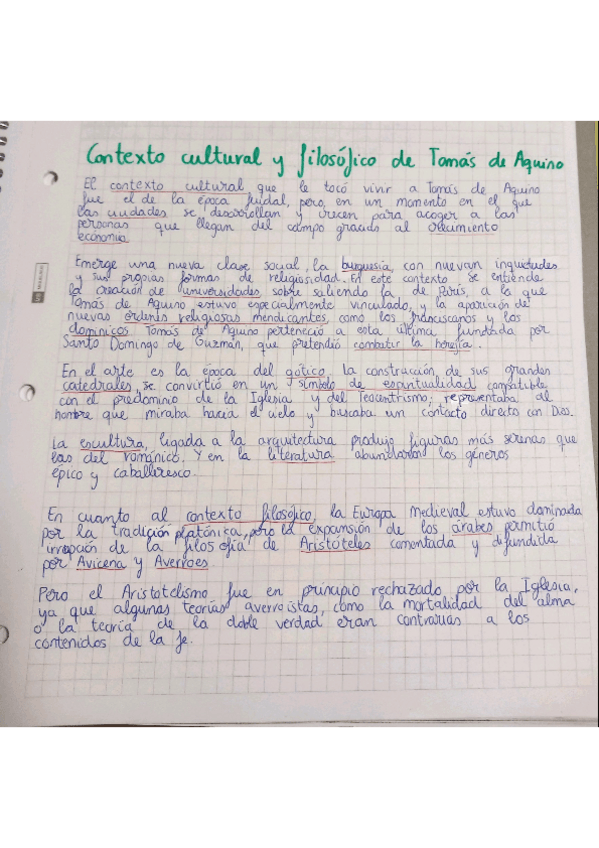 Contexto cultural y filosófico de Tomás de Aquino
El contexto cultural que le tocó vivir a Tomás de Aquino
fue el de la época feudal, pero, en un momento en el que
las ciudades se desarrollan y crecen para acoger a las
personas que llegan del campo gracias al crecimiento
economía
Emerge una nueva clase social, la burguesía, con nuevan inquietudes
y sus propias formas de religiosidad. En este contexto se entiende
la creación de universidades, sobre saliendo la de París, a la que
Tomás de Aquino estuvo especialmente vinculado, y la aparición de
nuevas órdenes religiosas mendicantes, como los franciscanos y los
dominicos Tomás de Aquino perteneció a esta última fundada por
Santo Domingo de Guzmán, que pretendió combatir la herejía.
En el arte es la época del gótico, la construcción de sus grandes
catedrales, se convirtió en un símbolo de espiritualidad compatible
con el predominio de la Iglesia y del Teocentrismo; representaba al
hombre que miraba hacia el cielo y buscaba un contacto directo con Dios.
La escultura, ligada a la arquitectura produjo figuras más serenas que
las del románico. Y en la literatura abundarón los géneros
épico y caballeresco.
En cuanto al contexto filosófico, la Europa Medieval estuvo dominada
por la tradición platónica, pero la expansión de los árabes permitió
irrupción de la filosofía de Aristóteles comentada y difundida
por Avicena y Averroes
Pero el Aristotelismo fue en principio rechazado por la Iglesia,
ya que algunas teorías averroístas, como la mortalidad del alma
o la teoría de la doble verdad eran contrarias a los
contenidos de la fe.